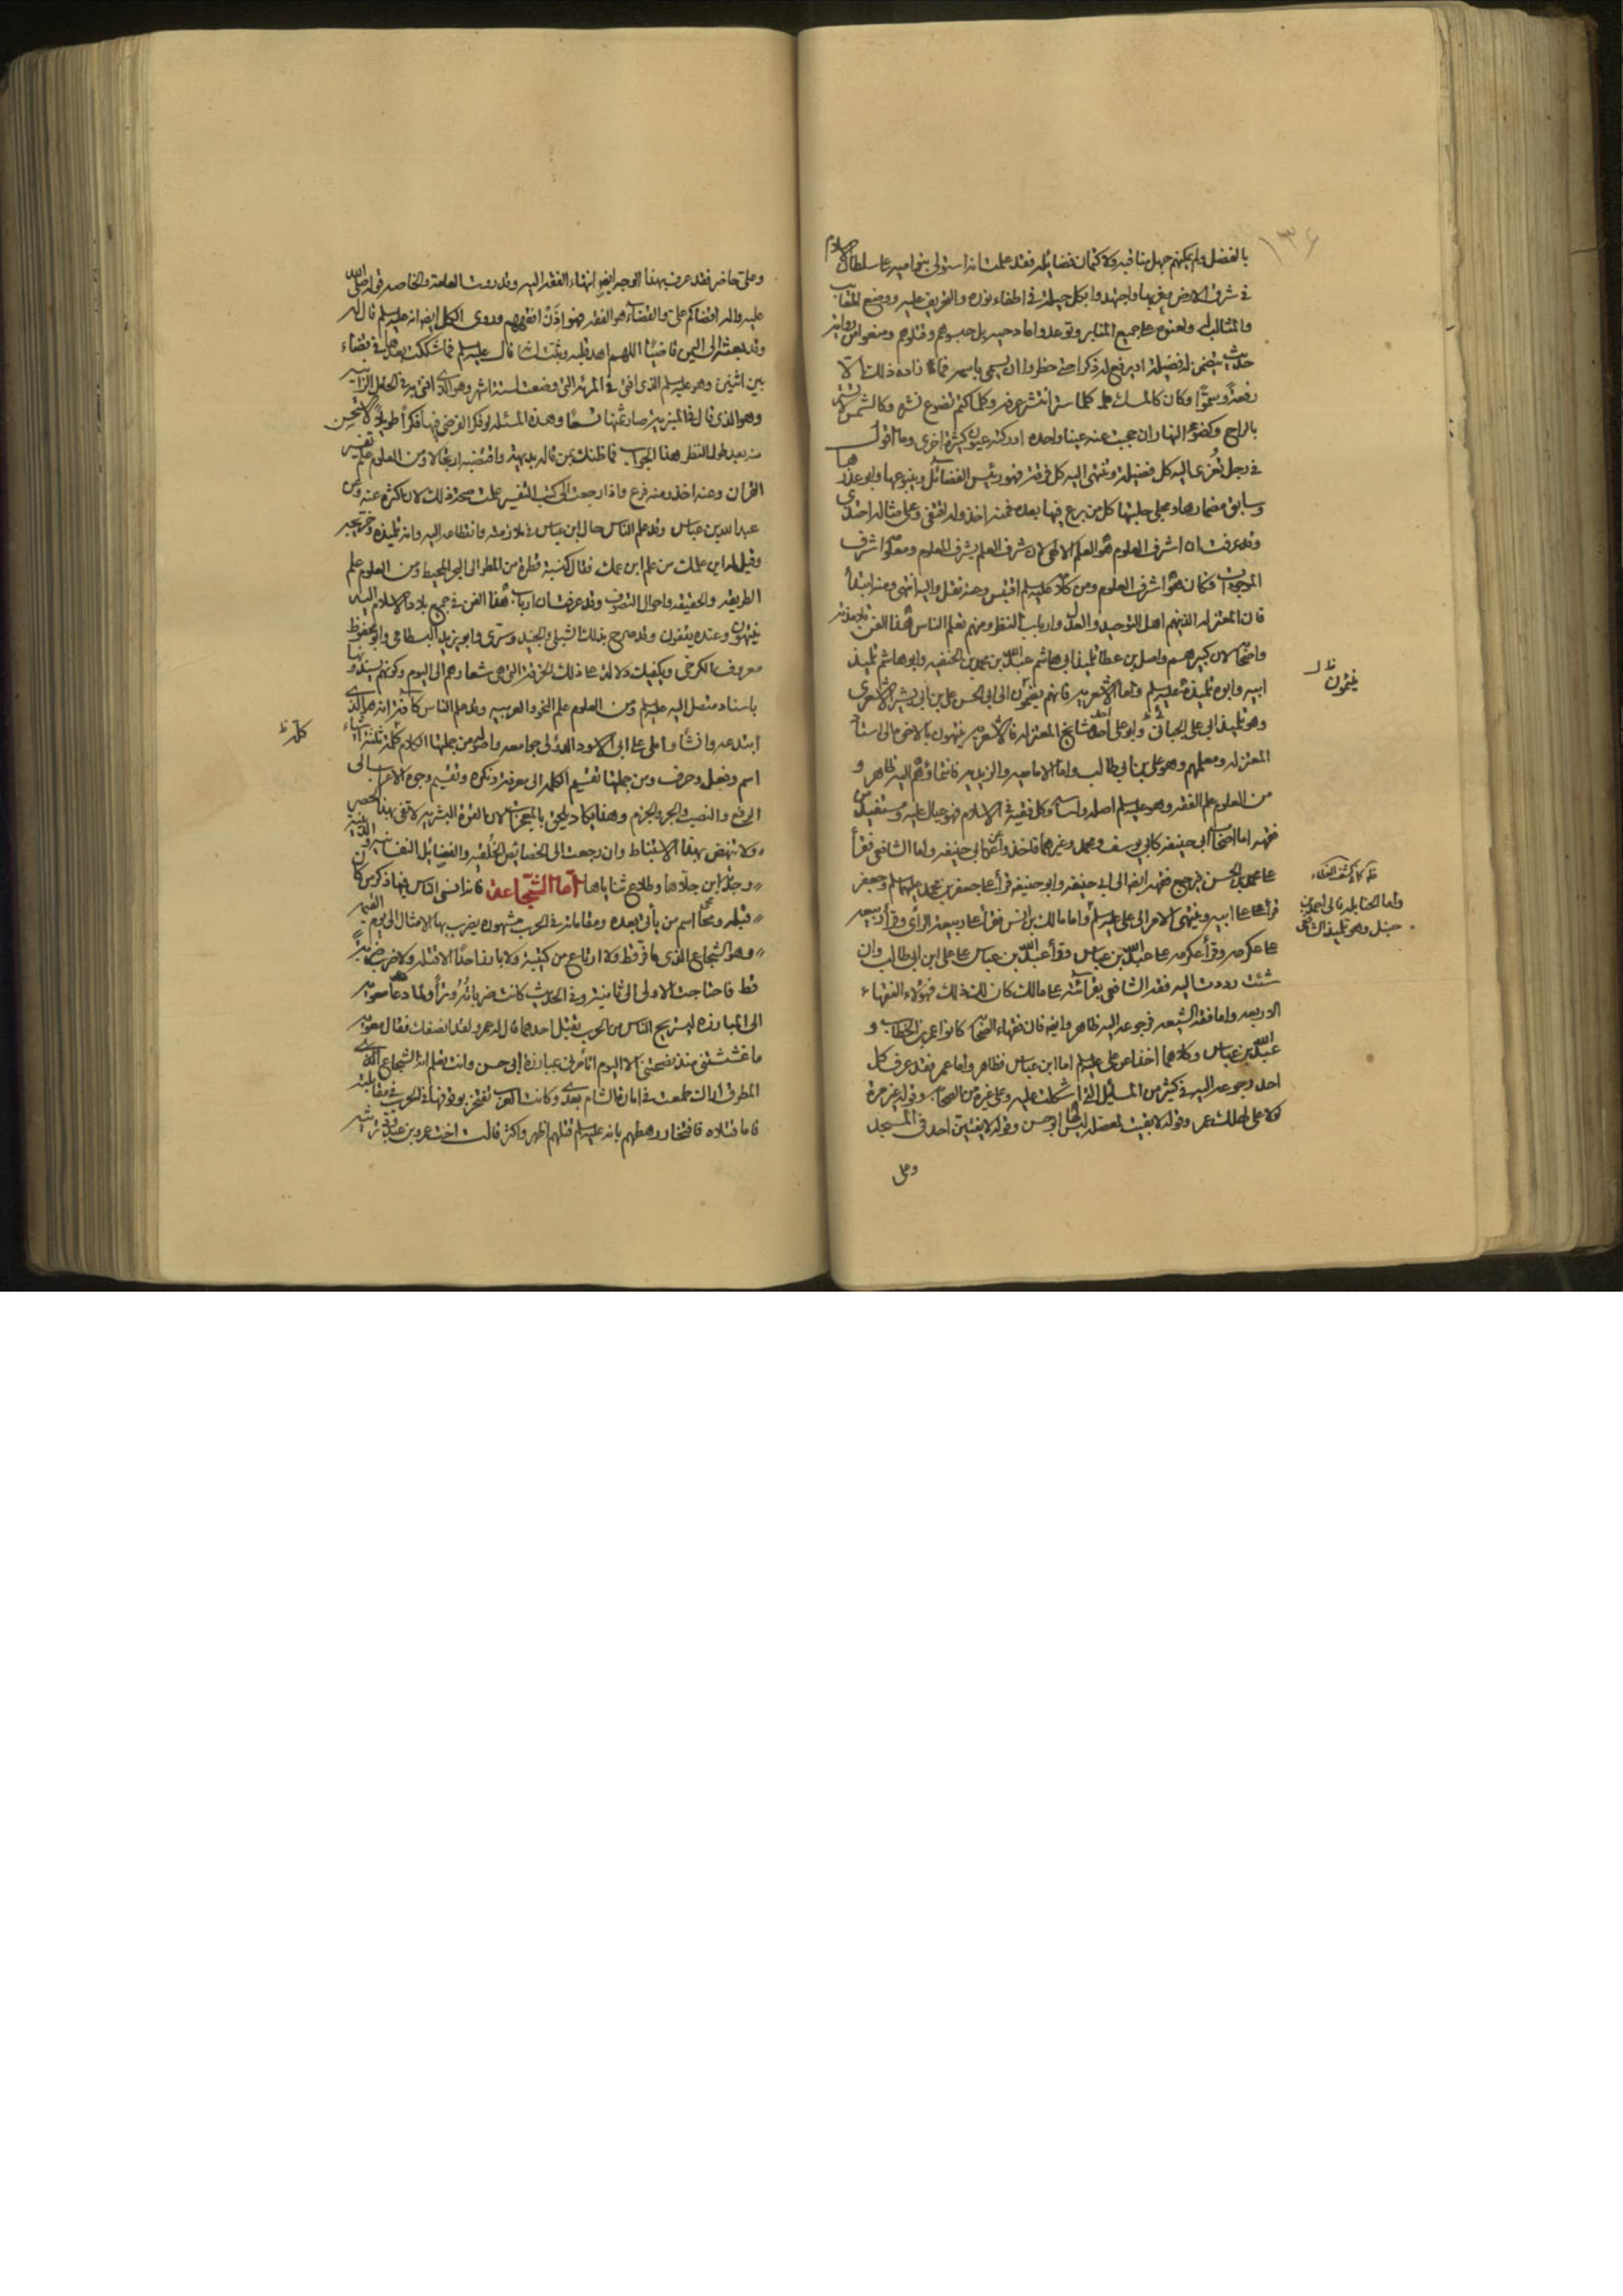 ١٣٤
بالفضل ولم يمكنهم جهل مناقبه ولا كتمان فضائله فقد علمت انه استولى بنو امية على سلطان الاسلام
في شرق الارض وغربها واجتهدوا بكل حيلة في اطفاء نوره والتحريف عليه ووضع المعايب
والمثالب له ولعنوه على جميع المنابر وتوعدوا مادحيه بل حبسوهم وقتلوهم ومنعوا من رواية
حديث يتضمن له فضيلة او يرفع له ذكرا حتى حظروا ان يسمى باسمه فما زاده ذلك الا
رفعة وسموّا وكان كالمسك كلما ستر انتشر عرفه وكلما كتم تضوع نشره وكالشمس لا تستر
بالراح وكضوء النهار ان حجبت عنه عينا واحدة ادركته عيون كثيرة اخرى وما اقول
في رجل تُعزى اليه كل فضيلة وتنتهى اليه كل فرقة فهو رئيس الفضائل وينبوعها وابو عذرها
وسابق مضمارها ومجلى حلبتها كل من برع فيها بعده فمنه اخذ وله اقتفى وعلى مثاله احتذى
وقد عرفت ان اشرف العلوم هو العلم الالهى لان شرف العلم بشرف المعلوم ومعلومه اشرف
الموجودات فكان هو اشرف العلوم ومن كلامه عليه السلم اقتبس وعنه نقل واليه انتهى ومنه ابتدأ
فان المعتزلة الذينهم اهل التوحيد والعدل وارباب النظر ومنهم تعلم الناس هذا الفن تلامذته
واصحابه لان كبيرهم واصل بن عطا تلميذ ابى هاشم عبد الله بن محمد بن الحنفيه وابو هاشم تلميذ
ابيه وابوه تلميذه عليه السلم واما الاشعريه فانهم ينتمون الى ابى الحسن على بن ابى بشر الاشعرى
وهو تلميذ ابى على الجبائى وابو على احد مشايخ المعتزله فالاشعريه ينتهون بالاخره الى استاد
المعتزله ومعلمهم وهو على بن ابى طالب واما الاماميه والزيديه فانتماؤهم اليه ظاهر و
من العلوم علم الفقه وهو عليه السلم اصله واساسه وكل فقيه فى الاسلام فهو عيال عليه ومستفيد من
فقهه اما اصحاب ابى حنيفه كابى يوسف ومحمد وغيرهما فاخذوا عن ابى حنيفه واما الشافعى فقرأ
على محمد بن الحسن فيرجع فقهه ايضا الى ابى حنيفه وابو حنيفه قرأ على جعفر بن محمد عليهما السلم وجعفر
قرأ على ابيه وينتهى الامر الى على عليه السلم واما مالك بن انس فقرأ على ربيعه الرأى وقرأ ربيعه
على عكرمه وقرأ عكرمه على عبد الله بن عباس وقرأ عبد الله بن عباس على على ابن ابى طالب وان
شئت رددت اليه فقه الشافعى بقراءته على مالك كان لك ذلك فهؤلاء الفقهاء
الاربعه واما فقه الشيعه فرجوعه اليه ظاهر وايضا فان فقهاء الصحابه كانوا عمر بن الخطاب و
عبد الله بن عباس وكلاهما اخذا عن على عليه السلم اما ابن عباس فظاهر واما عمر فقد عرف كل
احد رجوعه اليه فى كثير من المسائل التى اشكلت عليه وعلى غيره من الصحابه وقوله غير مرة
لولا على لهلك عمر وقوله لا بقيت لمعضلة ليس لها ابو حسن وقوله لا يفتين احد فى المسجد
وعلى
ينتمون
واما الحنابله فالى احمد بن
حنبل وهو تلميذ الشافعى
وعلى حاضر فقد عرف بهذا الوجه ايضا انتهاء الفقه اليه وقد روت العامة والخاصه قوله صلى الله
عليه واله اقضاكم على والقضاء هو الفقه فهو اذن افقههم وروى الكل ايضا انه عليه السلم قال له
وقد بعثه الى اليمن قاضيًا اللهم اهد قلبه وثبّت لسانه قال عليه السلم فما شككت بعدها فى قضاء
بين اثنين وهو عليه السلم الذى افتى فى المرأة التى وضعت لستة اشهر وهو الذى افتى فى الحامل الزانيه
وهو الذى قال فى المنبريه صار ثمنها تسعًا وهذه المسئله لو فكر الفرضى فيها فكرًا طويلًا لاستحسن
منه بعد طول النظر هذا الجواب فما ظنك بمن قاله بديهة واقتضبه ارتجالا ومن العلوم علم تفسير
القران وعنه اخذ ومنه فرع واذا رجعت الى كتب التفسير علمت صحة ذلك لان اكثره عنه وعن
عبد الله بن عباس وقد علم الناس حال ابن عباس فى ملازمته وانقطاعه اليه وانه تلميذه وخريجه
وقيل له اين علمك من علم ابن عمك فقال كنسبة قطرة من المطر الى البحر المحيط ومن العلوم علم
الطريقه والحقيقه واحوال التصوف وقد عرفت ان ارباب هذا الفن فى جميع بلاد الاسلام اليه
ينتهون وعنده يقفون وقد صرح بذلك الشبلى والجنيد وسرى وابو يزيد البسطامى وابو محفوظ
معروف الكرخى ويكفيك دلالة على ذلك الخرقة التى هى شعارهم الى اليوم وكونهم يسندونها
باسناد متصل اليه عليه السلم ومن العلوم علم النحو والعربيه وقد علم الناس كافة انه هو الذى
ابتدعه وانشأه واملى على ابى الاسود الدئلى جوامعه واصوله من جملتها الكلام كله ثلثة اشياء
اسم وفعل وحرف ومن جملتها تقسيم الكلمه الى معرفة ونكره وتقسيم وجوه الاعراب الى
الرفع والنصب والجر والجزم وهذا يكاد يلحق بالمعجزات لان القوة البشريه لا تفى بهذا الحصر
ولا تنهض بهذا الاستنباط وان رجعت الى الخصائص الخُلقيه والفضائل النفسانيه والدينيه
وجدته ابن جلاها وطلاع ثناياها اما الشجاعة فانه انسى الناس فيها ذكر من كان
قبله ومحا اسم من يأتى بعده ومقاماته فى الحرب مشهوره يضرب بها الامثال الى يوم القيمه
وهو الشجاع الذى ما فرّ قط ولا ارتاع من كتيبة ولا بارز احدًا الا قتله ولا ضرب ضربة
قط فاحتاجت الاولى الى ثانية وفى الحديث كانت ضرباته وترًا ولما دعا معويه
الى المبارزه ليستريح الناس من الحرب بقتل احدهما قال له عمرو لقد انصفك فقال معويه
ما غششتنى منذ نصحتنى الا اليوم اتأمرنى بمبارزة ابى حسن وانت تعلم انه الشجاع الذى
المطرق اراك طمعت فى امارة الشام بعدى وكانت العرب تفتخر بوقوفها فى الحرب فى مقابلته
فاما قتلاه فافتخار رهطهم بانه عليه السلم قتلهم اظهر واكثر قالت اخت عمرو بن عبدود ترثيه
كله